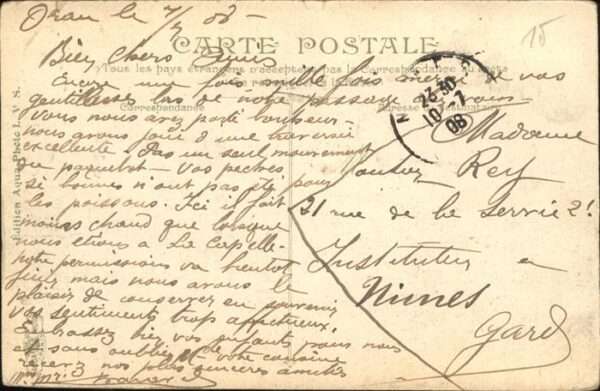 Oran le 7/7 08
15
Bien chers Amis
CARTE POSTALE
Tous les pays étrangers n'acceptent pas la Correspondance au recto
Encore une fois mille fois merci de vos
gentillesses lors de notre passage à
Correspondance
Adresse
Vous nous avez porté bonheur
nous avons joui d'une traversée
excellente. Pas un seul mouvement
du paquebot - Vos pêches
si bonnes n'ont pas été pour
les poissons. Ici il fait
moins chaud que lorsque
nous étions à La Capelle
notre permission va bientôt
finir mais nous avons le
plaisir de conserver en souvenir
vos sentiments trop affectueux.
Embrassez bien vos enfants pour nous
sans oublier votre cousine
recevez nos plus sincères amitiés
23-30
10-7
08
Madame
Rey
21 rue de la Servie
Instituteur
Nimes
Gard
Edition Aqua-Photo L. V.